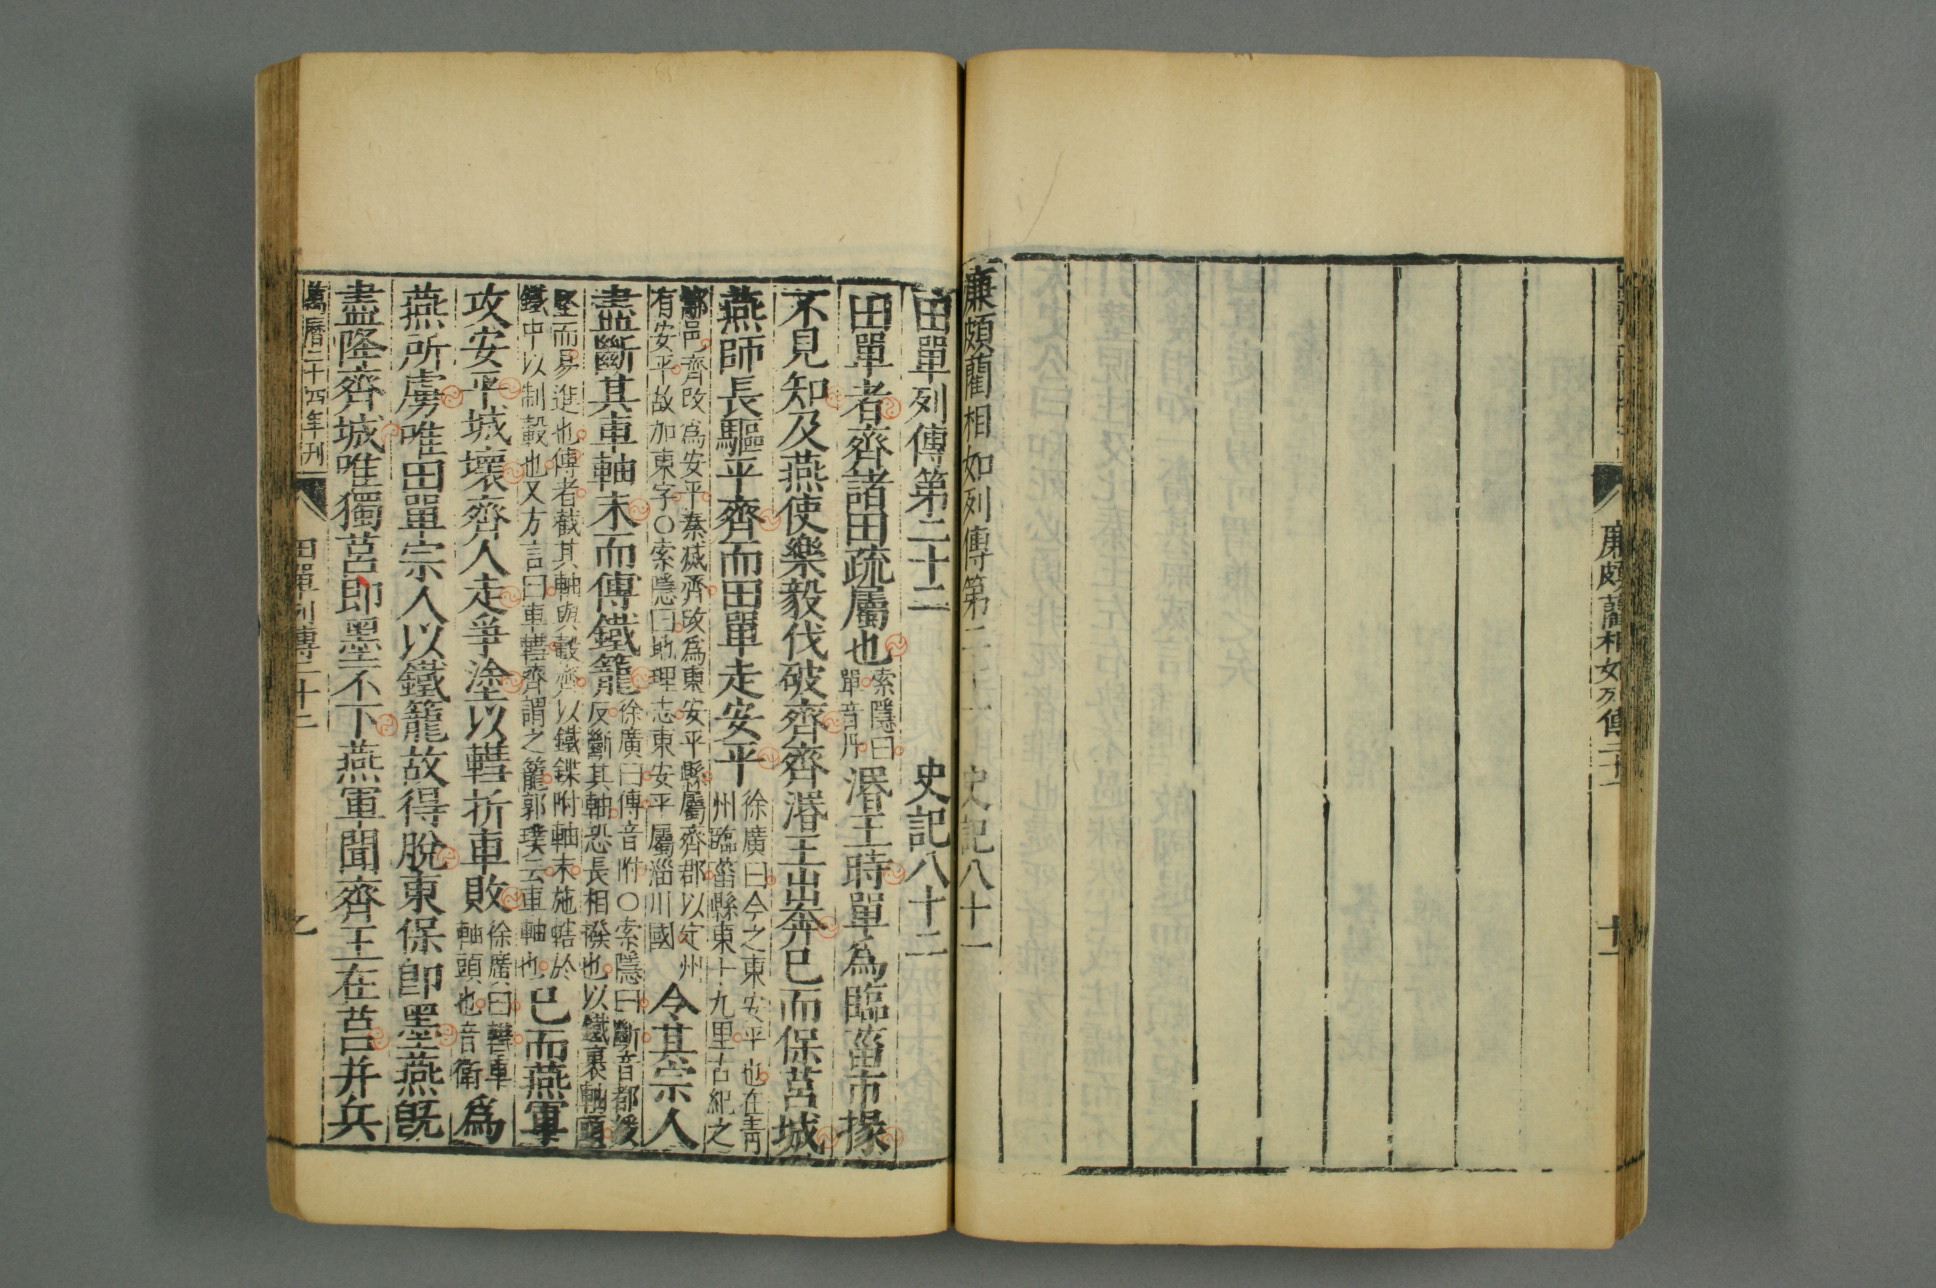 廉頗藺相如列傳二十一
十一
廉頗藺相如列傳第二十一 史記八十一
田單列傳第二十二 史記八十二
田單者齊諸田疏屬也
索隱曰
單音丹
湣王時單爲臨菑市掾
不見知及燕使樂毅伐破齊齊湣王出奔已而保莒城
燕師長驅平齊而田單走安平
徐廣曰今之東安平也在青
州臨菑縣東十九里古紀之
鄑邑齊改爲安平秦滅齊改爲東安平縣屬齊郡以定州
有安平故加東字〇索隱曰地理志東安平屬淄川國
令其宗人
盡斷其車軸末而傅鐵籠
徐廣曰傅音附〇索隱曰斷音都緩
反斷其軸恐長相撥也以鐵裹軸頭
堅而易進也傅者截其軸與轂齊以鐵鍱附軸末施轄於
鐵中以制轂也又方言曰車轊齊謂之籠郭璞云車軸也
已而燕軍
攻安平城壞齊人走爭塗以轊折車敗
徐廣曰轊車
軸頭也音衛
爲
燕所虜唯田單宗人以鐵籠故得脫東保卽墨燕旣
盡降齊城唯獨莒卽墨不下燕軍聞齊王在莒并兵
萬曆二十四年刊
田單列傳二十二